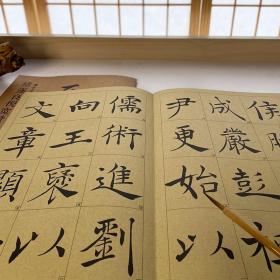 侯勝
成嚴彭祖
尹更始以
儒術進劉
向王褒以
文章顯